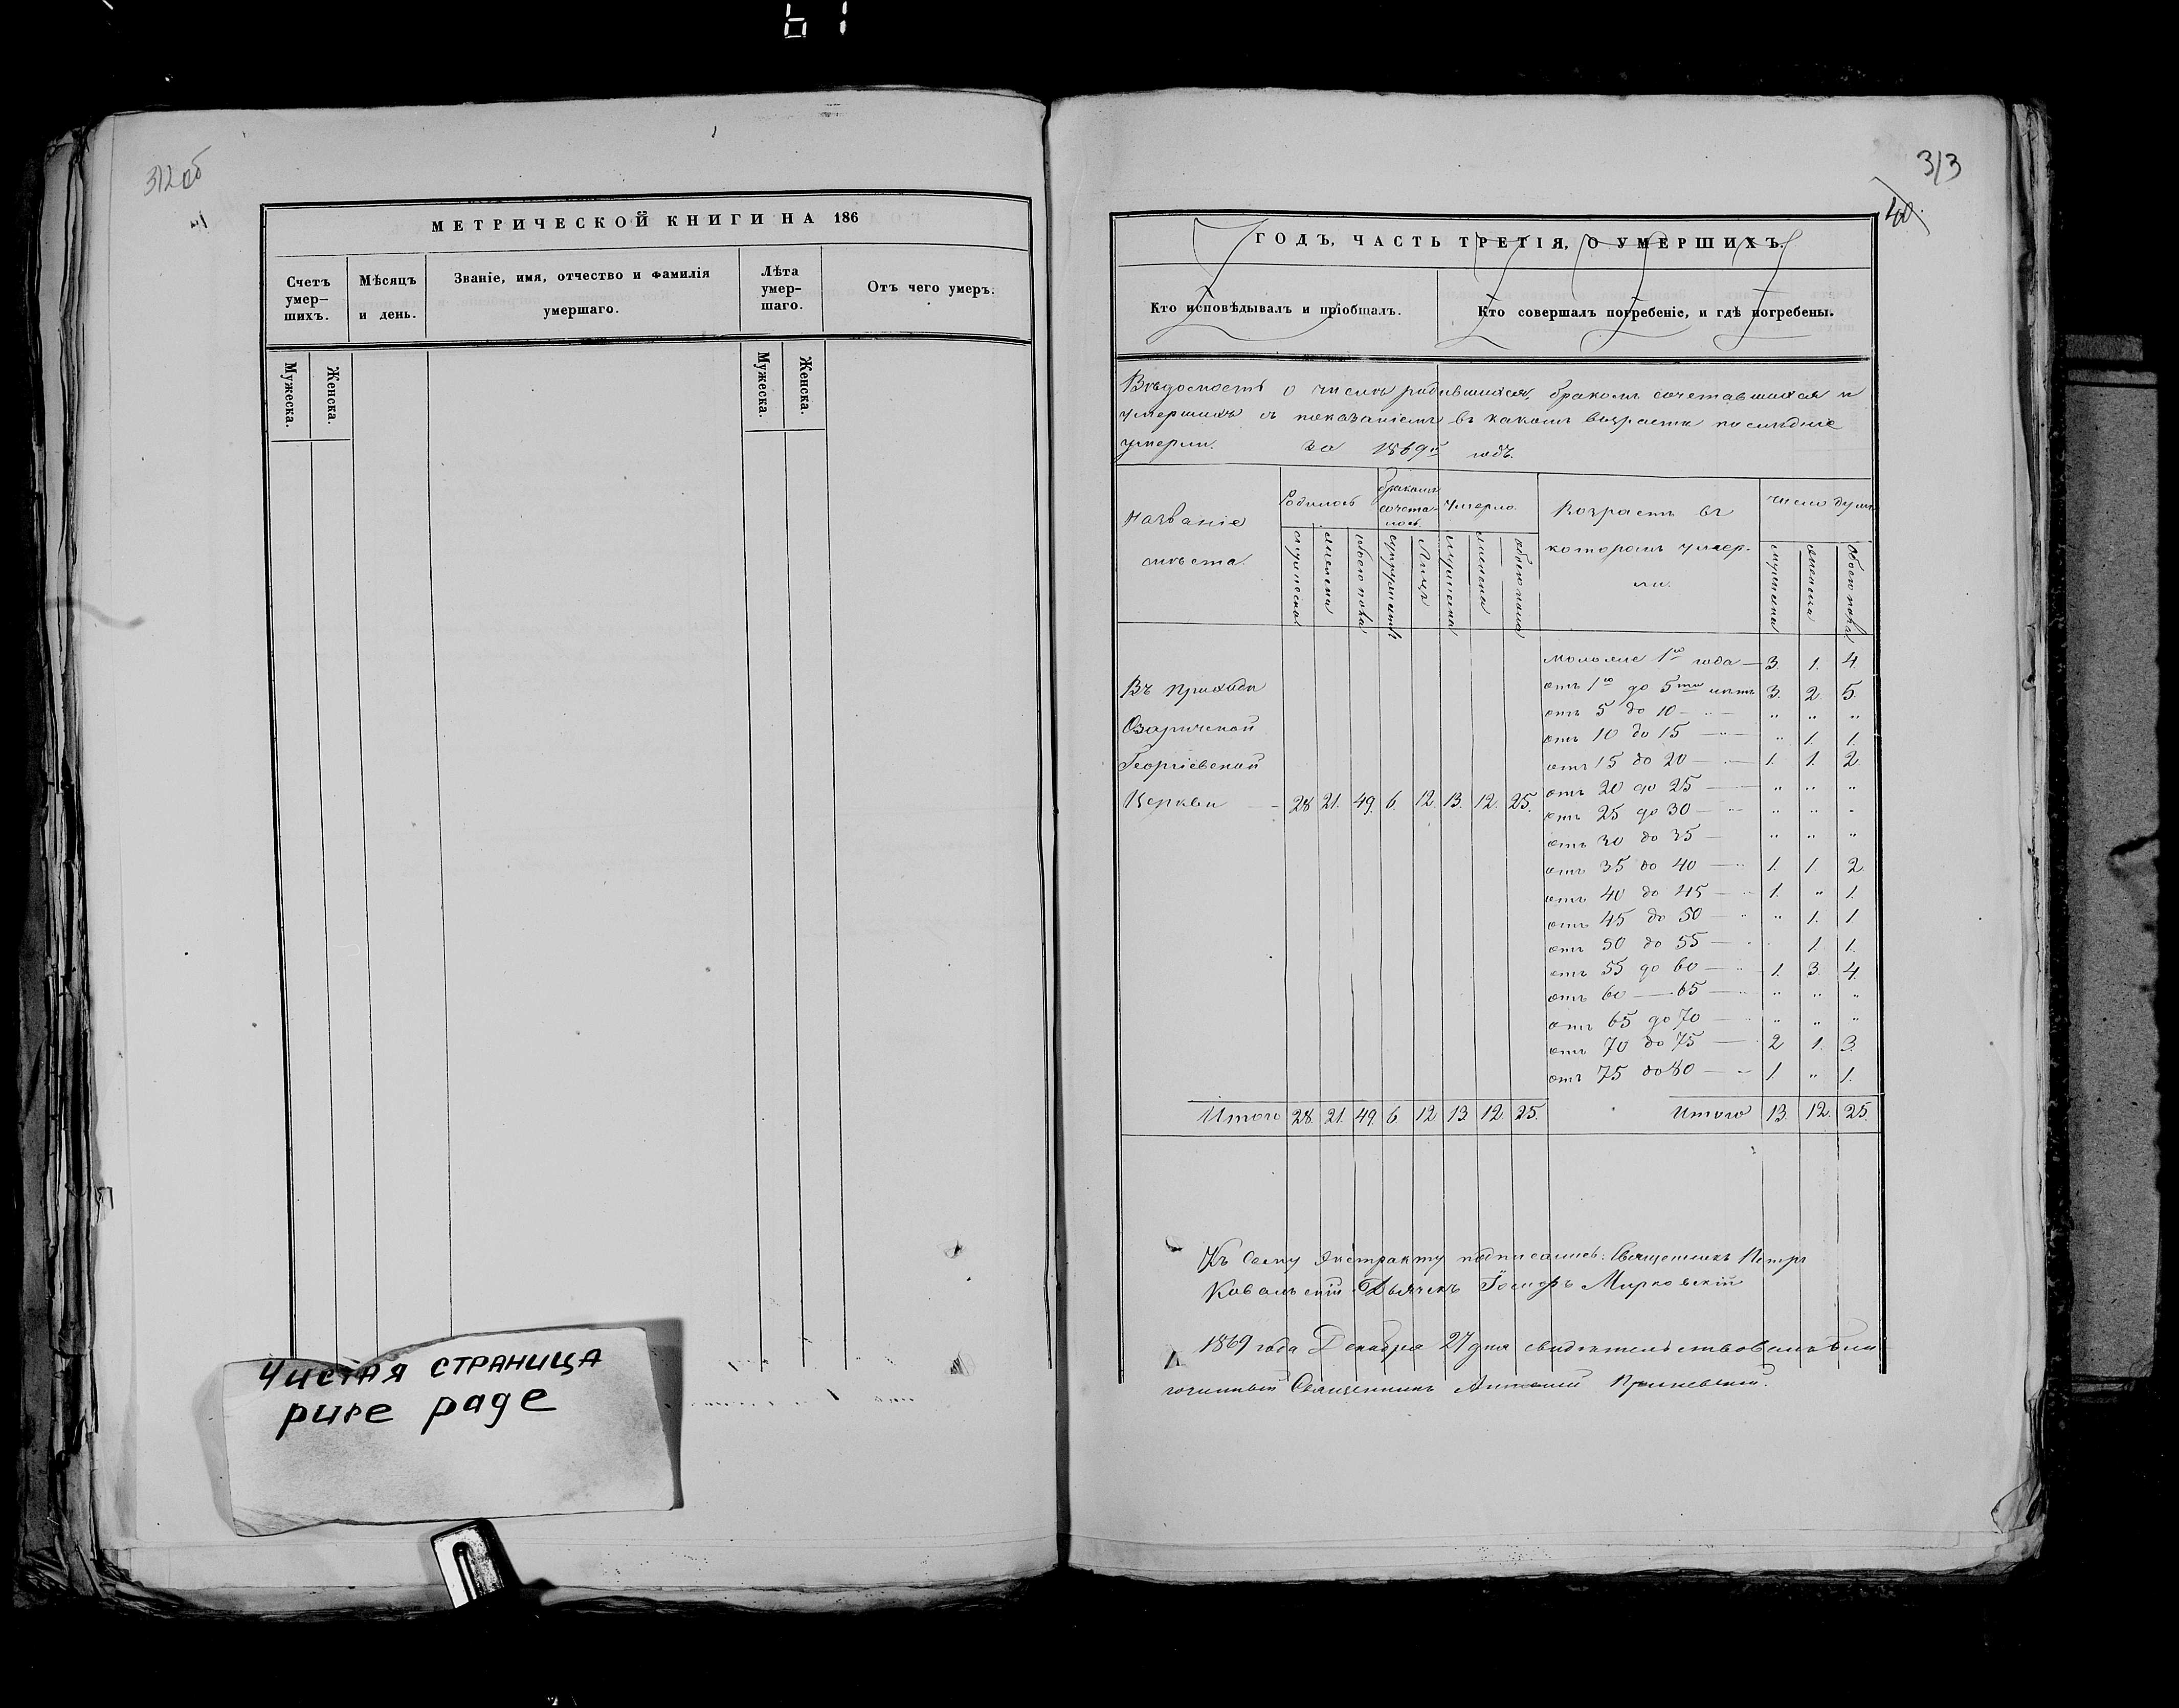 61
312об
МЕТРИЧЕСКОЙ КНИГИ НА 186
Счетъ умер-шихъ.
Мѣсяцъ и день.
Званіе, имя, отчество и фамилія умершаго.
Лѣта умер-шаго.
Отъ чего умеръ.
Мужеска.
Женска.
Мужеска.
Женска.
Чистая страница
pure page
313
40.
ГОДЪ, ЧАСТЬ ТРЕТІЯ, О УМЕРШИХЪ.
Кто исповѣдывалъ и пріобщалъ.
Кто совершалъ погребеніе, и гдѣ погребены.
Вѣдомость о числѣ родившихся, бракомъ сочетавшихся и
умершихъ съ показаніемъ въ какомъ возрастѣ послѣдніе
умерли. за 1869й годъ.
Названіе мѣста
Родилось
бракомъ сочета-лось
Умерло
Возрастъ въ которомъ умер-ли.
число душъ
мужеска
женска
обоего пола
супружествъ
Лицъ
мужеска
женска
обоего пола
мужеска
женска
обоего пола
моложе 1го года — 3. 1. 4.
Въ Приходѣ
отъ 1го до 5ти лѣтъ 3. 2. 5.
отъ 5 до 10 — " " "
Озаричской
отъ 10 до 15 — " 1. 1.
Георгіевской
отъ 15 до 20 — 1. 1. 2
Церкви — 28 21. 49. 6. 12. 13. 12. 25.
отъ 20 до 25 — " " "
отъ 25 до 30 — " " "
отъ 30 до 35 — " " "
отъ 35 до 40 — 1. 1 2
отъ 40 до 45 — 1. " 1.
отъ 45 до 50 — " 1. 1
отъ 50 до 55 — 1. 1.
отъ 55 до 60 — 1. 3. 4.
отъ 60 — 65 — " " "
отъ 65 до 70 — " " "
отъ 70 до 75 — 2 1. 3.
отъ 75 до 80 — 1. " 1.
Итого 28. 21. 49. 6. 12. 13. 12. 25. Итого 13. 12. 25.
Къ сему экстракту подписались: Священникъ Петръ
Ковальскій Дьячекъ Іосифъ Мирковскій
1869 года Декабря 27 дня свидѣтельствовалъ бла
гочинный Священникъ Антоній